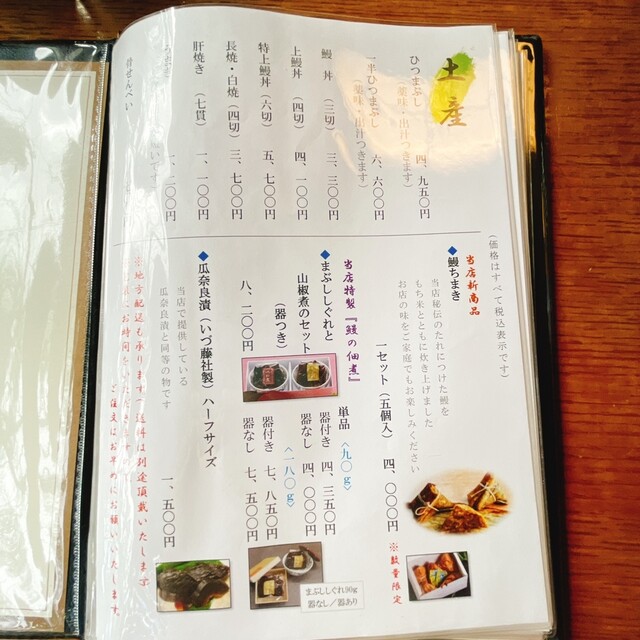 土産
(価格はすべて税込表示です)
ひつまぶし 四、九五〇円
(薬味・出汁つきます)
一半ひつまぶし 六、六〇〇円
(薬味・出汁つきます)
鰻丼 (三切) 三、三〇〇円
上鰻丼 (四切) 四、一〇〇円
特上鰻丼 (六切) 五、七〇〇円
長焼・白焼 (四切) 三、七〇〇円
肝焼き (七貫) 一、一〇〇円
一、二〇〇円
骨せんべい
当店新商品
◆鰻ちまき
当店秘伝のたれにつけた鰻を
もち米とともに炊き上げました
お店の味をご家庭でもお楽しみください
一セット (五個入) 四、〇〇〇円
※数量限定
当店特製『鰻の佃煮』
◆まぶししぐれと
山椒煮のセット
(器つき)
八、二〇〇円
単品 〈九〇g〉
器付き 四、三五〇円
器なし 四、〇〇〇円
〈一八〇g〉
器付き 七、八五〇円
器なし 七、五〇〇円
まぶししぐれ90g
器なし/器あり
◆瓜奈良漬 (いづ藤社製) ハーフサイズ
当店で提供している
瓜奈良漬と同等の物です
一、五〇〇円
※地方配送も承ります(送料は別途頂戴いたします)
ご注文はお早めにお願いいたします。